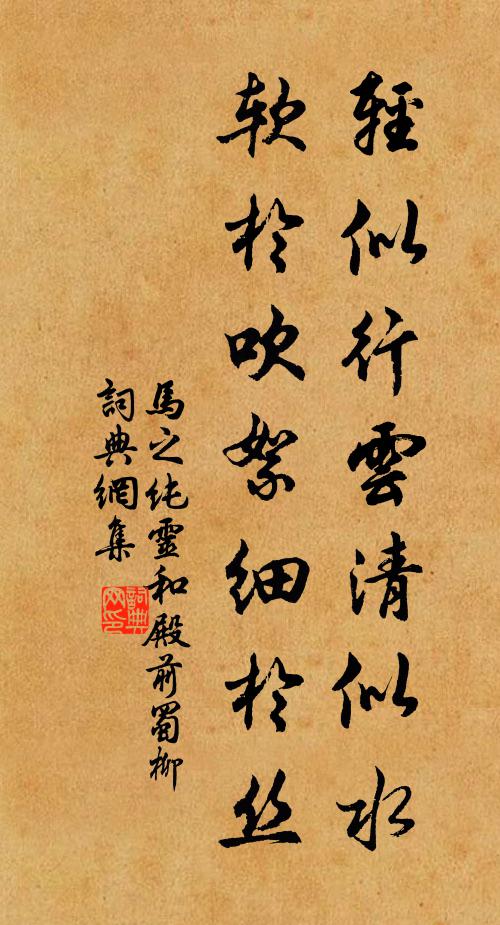 輕似行雲清似水
软於吹絮細於丝
馬之純靈和殿前蜀柳
詞典網集
詞典网印